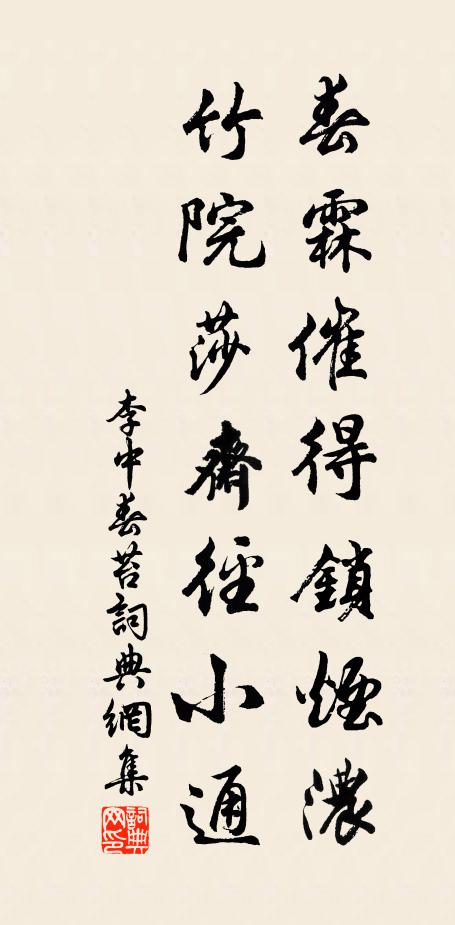 春霖催得鎖煙濃
竹院莎齋徑小通
李中春苔詞典網集
詞典網印